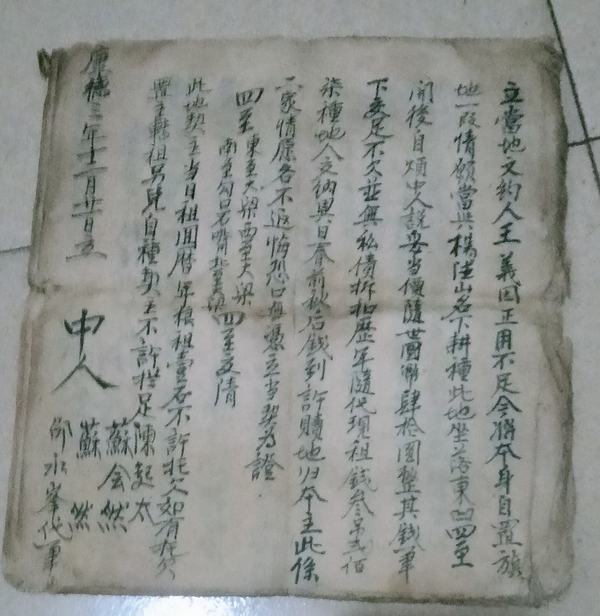 立當地文約人王義因正用不足今將本身自置旗
地一段情願當與楊陞山名下耕種此地坐落東凹四至
開後自煩中人說妥當價隨世國幣肆拾圓整其錢筆
下交足不欠並無私債折扣歷年隨代現租錢叁吊弍佰
柒種地人交納異日春前秋后錢到許贖地归本主此係
二家情愿各不返悔恐口無憑立當契為證
四至東至大梁西至大梁
南至勾口石嘴北至大梁四至交清
此地契主當日租回曆年粮租壹石不許托欠如有拖欠
置主轉租另兑自種契主不許攔
康德二年十二月廿日立
中人
陳起太
蘇会然
蘇然
邰水峯代筆